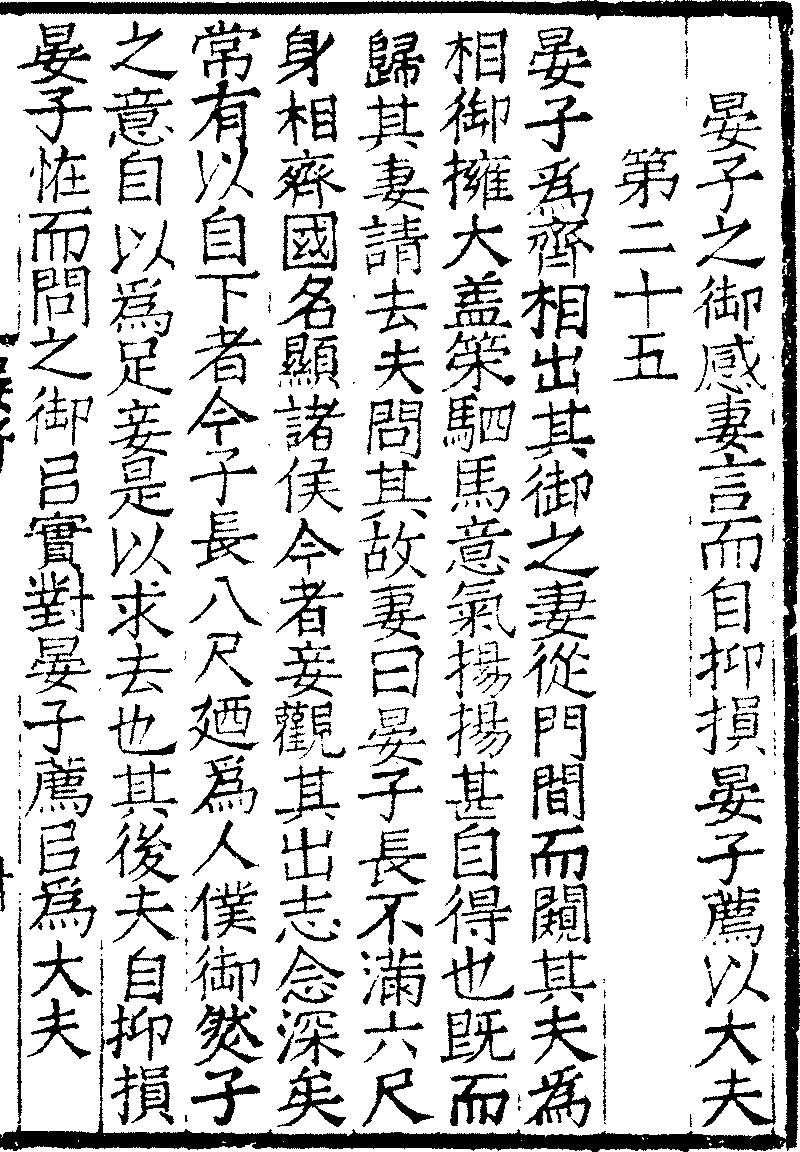 晏子之御感妻言而自抑損晏子薦以大夫
第二十五
晏子爲齊相出其御之妻從門間而闚其夫爲
相御擁大盖策駟馬意氣揚揚甚自得也旣而
歸其妻請去夫問其故妻曰晏子長不滿六尺
身相齊國名顯諸侯今者妾觀其出志念深矣
常有以自下者今子長八尺廼爲人僕御然子
之意自以爲足妾是以求去也其後夫自抑損
晏子恠而問之御㠯實對晏子薦㠯爲大夫